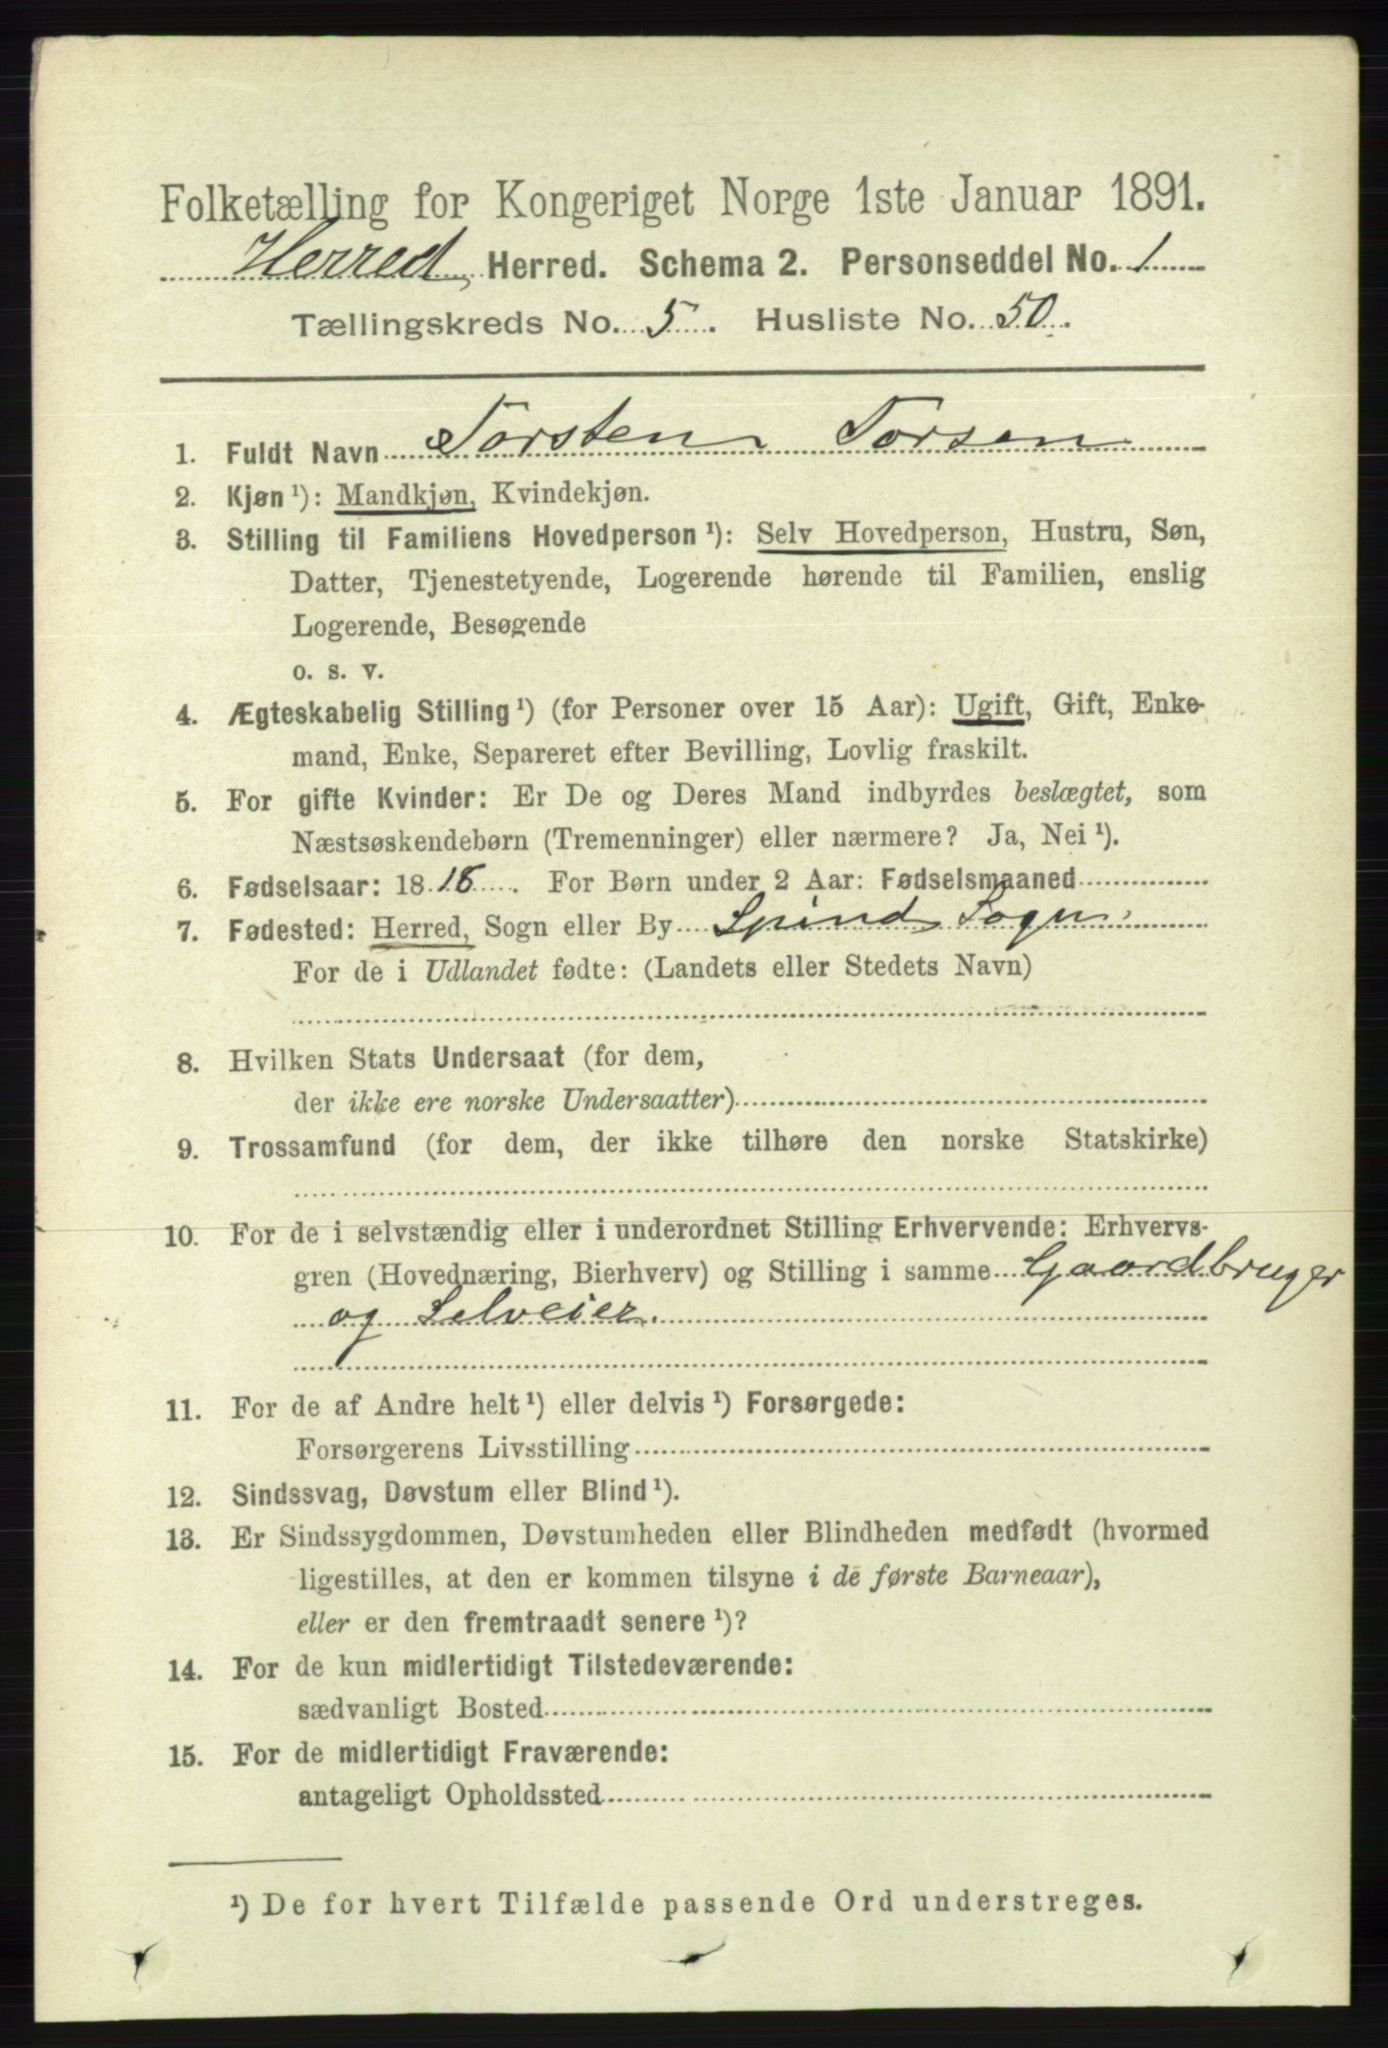 Folketælling for Kongeriget Norge 1ste Januar 1891.
Herred Herred. Schema 2. Personseddel No. 1
Tællingskreds No. 5. Husliste No. 50.
1. Fuldt Navn Torsten Torsen
2. Kjøn ¹): Mandkjøn, Kvindekjøn.
3. Stilling til Familiens Hovedperson ¹): Selv Hovedperson, Hustru, Søn,
Datter, Tjenestetyende, Logerende hørende til Familien, enslig
Logerende, Besøgende
o. s. v.
4. Ægteskabelig Stilling ¹) (for Personer over 15 Aar): Ugift, Gift, Enke-
mand, Enke, Separeret efter Bevilling, Lovlig fraskilt.
5. For gifte Kvinder: Er De og Deres Mand indbyrdes beslægtet, som
Næstsøskendebørn (Tremenninger) eller nærmere? Ja, Nei ¹).
6. Fødselsaar: 18 18. For Børn under 2 Aar: Fødselsmaaned
7. Fødested: Herred, Sogn eller By Spind Sogn
For de i Udlandet fødte: (Landets eller Stedets Navn)
8. Hvilken Stats Undersaat (for dem,
der ikke ere norske Undersaatter)
9. Trossamfund (for dem, der ikke tilhøre den norske Statskirke)
10. For de i selvstændig eller i underordnet Stilling Erhvervende: Erhvervs-
gren (Hovednæring, Bierhverv) og Stilling i samme Gaardbruger
og Selveier.
11. For de af Andre helt ¹) eller delvis ¹) Forsørgede:
Forsørgerens Livsstilling
12. Sindssvag, Døvstum eller Blind ¹).
13. Er Sindssygdommen, Døvstumheden eller Blindheden medfødt (hvormed
ligestilles, at den er kommen tilsyne i de første Barneaar),
eller er den fremtraadt senere ¹)?
14. For de kun midlertidigt Tilstedeværende:
sædvanligt Bosted
15. For de midlertidigt Fraværende:
antageligt Opholdssted
¹) De for hvert Tilfælde passende Ord understreges.